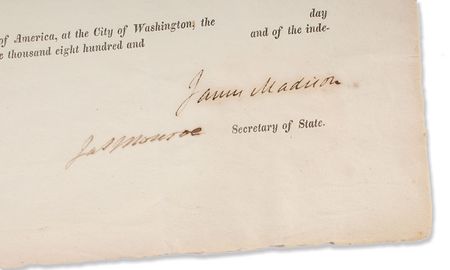 of America, at the City of Washington, the day
thousand eight hundred and and of the inde-
James Madison
Jas Monroe Secretary of State.